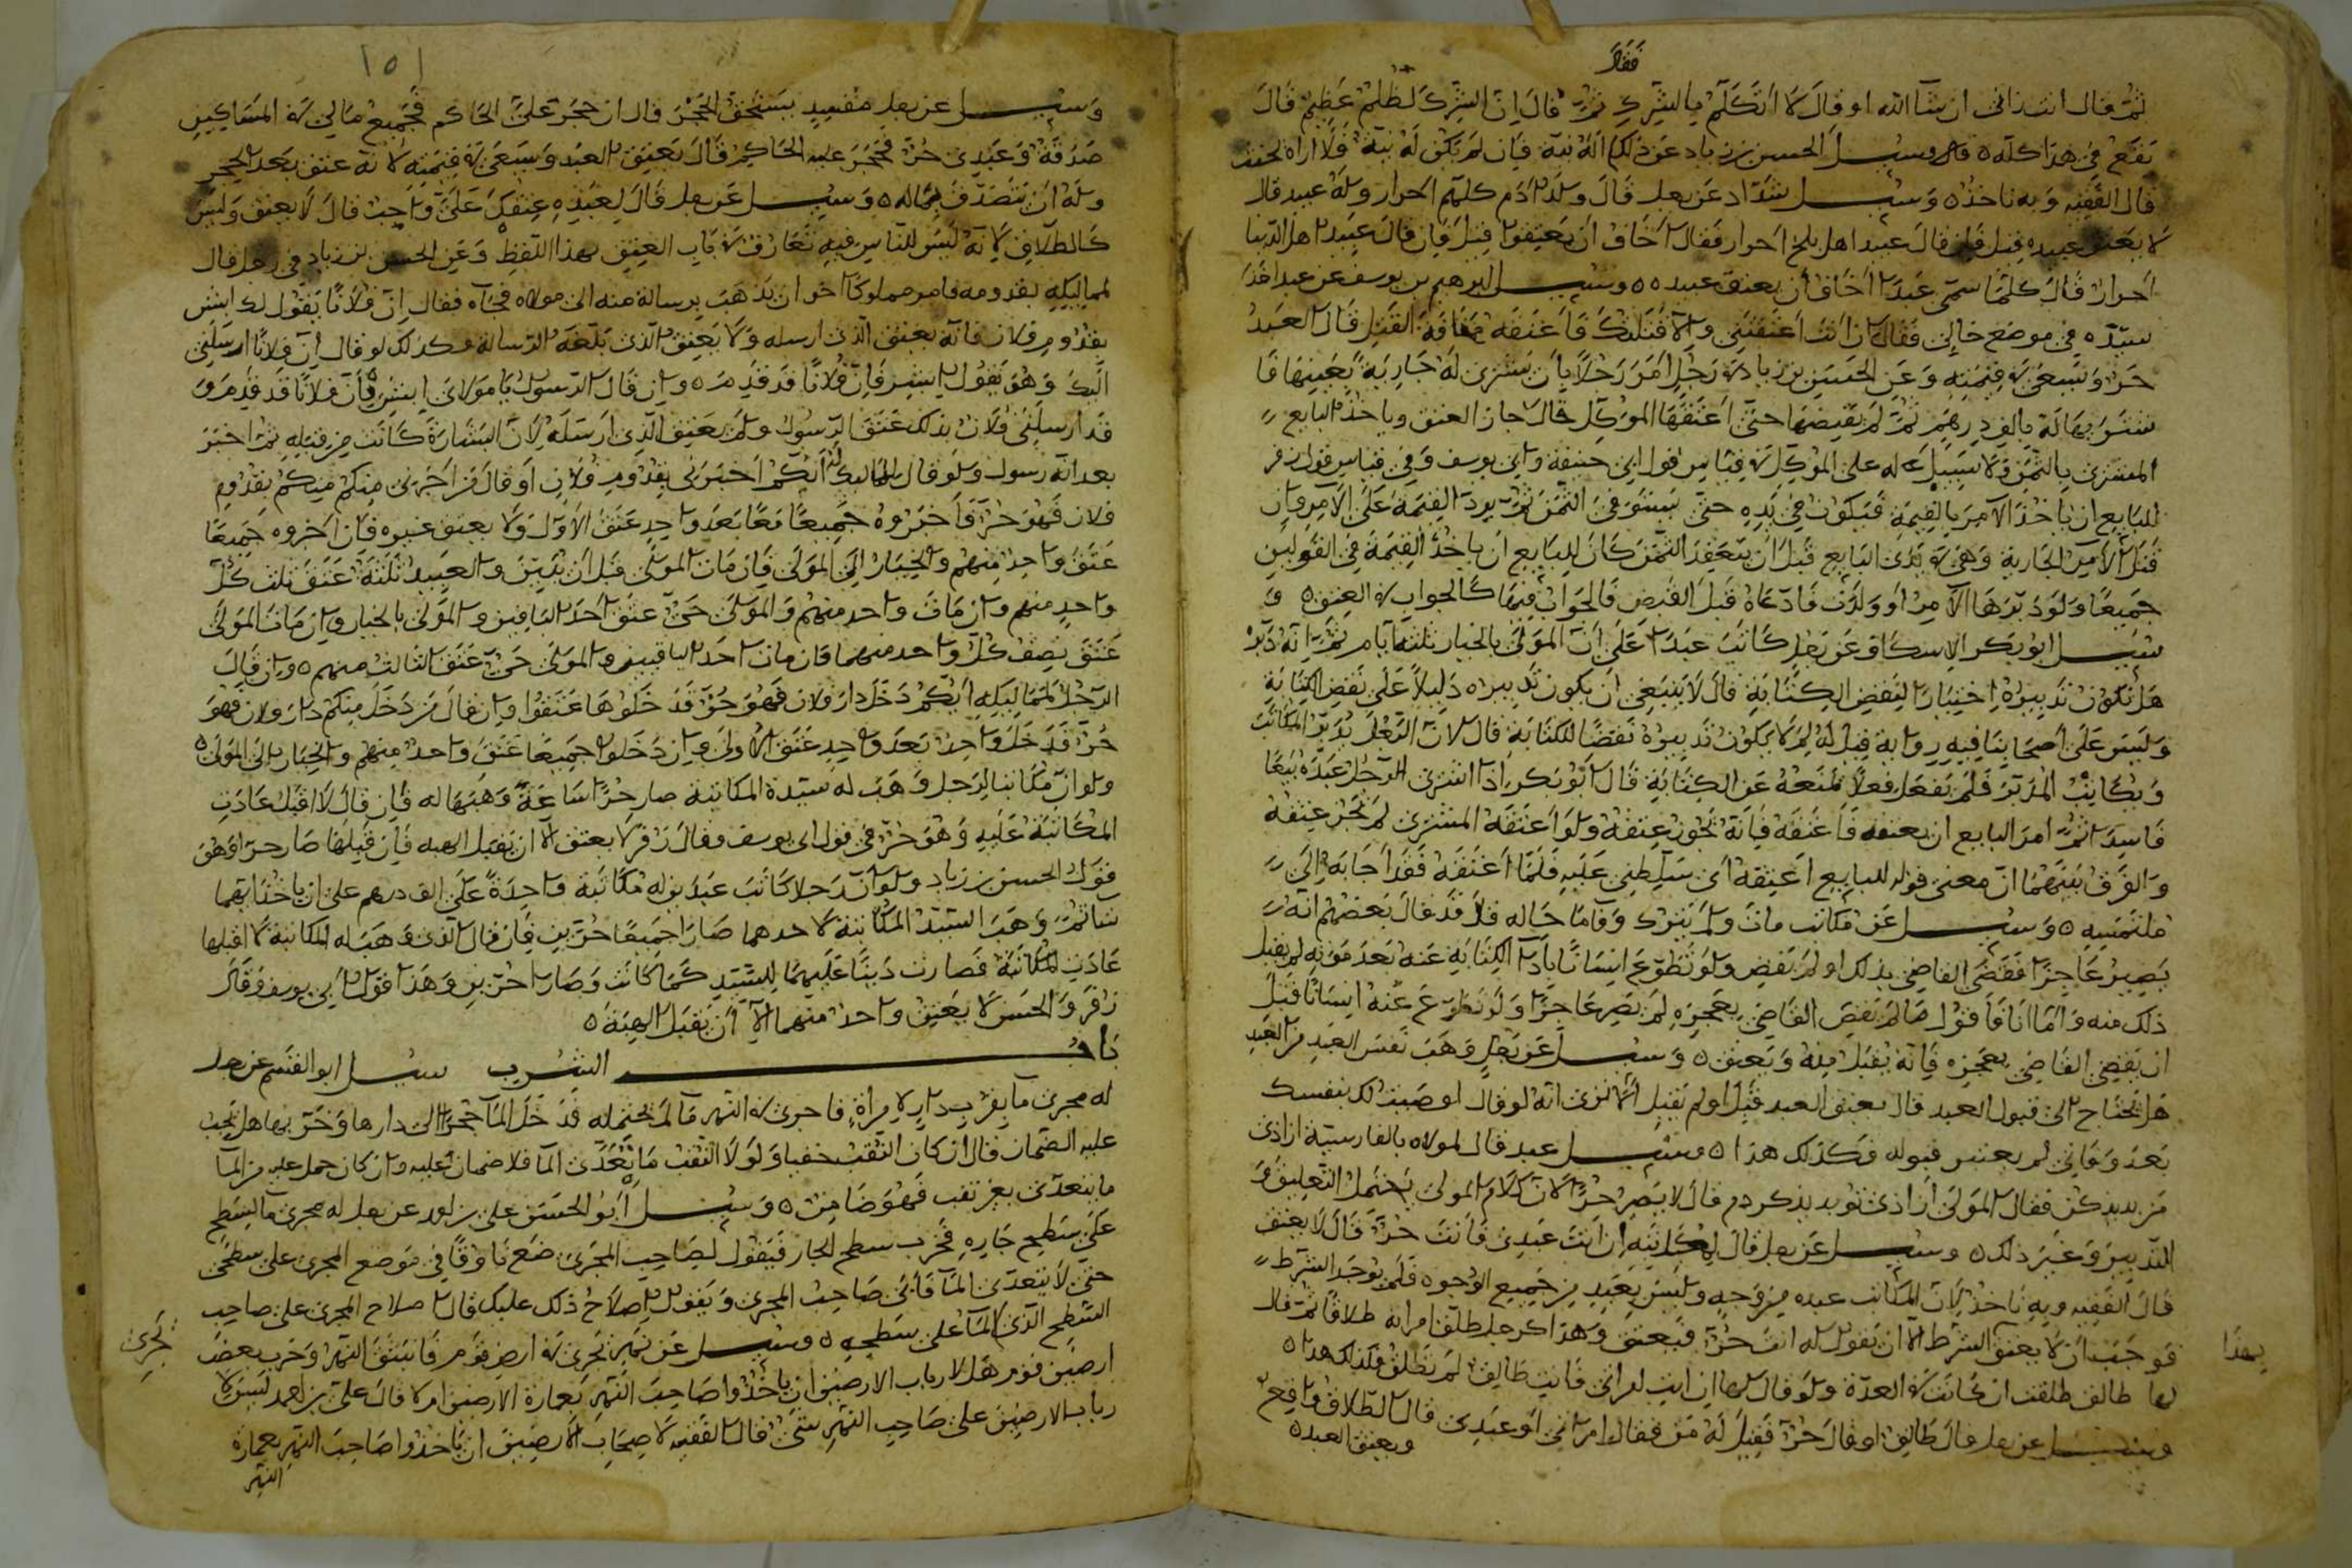 فقال
ثم قال انت زاني ان شآ الله او قال لا اتكلم بالشرك ثم قال ان الشرك لظلم عظيم قال
يقع في هذا كله ٥ قال وسيل الحسن بن زياد عن ذلك اله نية فان لم يكن له نية فلا اراه يحنث
قال الفقيه وبه ناخذ ٥ وسيل شداد عن رجل قال ولد ادم كلهم احرار وله عبيد قال
لا يعتق عبيده قيل فان قال عبيد اهل بلخ احرار فقال اخاف ان يعتقوا قيل فان قال عبيد اهل الدنيا
احرار قال كلما سمي عبدا اخاف ان يعتق عبيده ٥ ٥ وسيل ابرهيم بن يوسف عن عبد اخذ
سيده في موضع خالي فقال ان انت اعتقتني والا قتلتك فاعتقه مخافة القتل قال العبد
حر ويسعي في قيمته وعن الحسن بن زياد في رجل امر رجلا بان يشتري له جارية بعينها فا
شترىها له بالف درهم ثم لم يقبضها حتى اعتقها الموكل قال جاز العتق وياخذ البايع
المشتري بالثمن ولا سبيل له على الموكل في قياس قول ابي حنيفة وابي يوسف وفي قياس قول زفر
للبايع ان ياخذ الآمر بالقيمة فيكون في يده حتى يستوفي الثمن ثم يرد القيمة على الآمر وان
قتل الآمر الجارية وهي في يدى البايع قبل ان ينقد الثمن كان للبايع ان ياخذ القيمة في القولين
جميعا ولو دبرها الآمر او ولدت فادعاه قبل القبض فالجواب فيها كالجواب في العتق ٥ و
سيل ابو بكر الاسكاف عن رجل كاتب عبدا على ان المولى بالخيار ثلثة ايام ثم انه دبره
هل يكون تدبيره اختيارا لنقض الكتابة قال لا ينبغي ان يكون تدبيره دليلا على نقض الكتابة
وليس على اصحابنا فيه رواية قيل له لم لا يكون تدبيره نقضا للكتابة قال لان الرجل يدبر المكاتب
ويكاتب المدبر فلم يفعل فعلا يمنعه عن الكتابة قال ابو بكر اذا اشترى الرجل عبده بيعا
فاسدا ثم امر البايع ان يعتقه فاعتقه فانه يجوز عتقه ولو اعتقه المشترى لم يجز عتقه
والفرق بينهما ان معنى قوله للبايع اعتقه اى سلطني عليه فلما اعتقه فقد اجابه الى
ملتمسه ٥ وسيل عن مكاتب مات ولم يترك وفآ ما حاله قال قد قال بعضهم انه
يصير عاجزا فقضى القاضي بذلك او لم يقض ولو تطوع انسانا بادآ الكتابة عنه بعد موته لم يقبل
ذلك منه واما انا فاقول ما لم يقض القاضي بعجزه لم يصر عاجزا ولو تطوع عنه انسانا قبل
ان يقضي القاضي بعجزه فانه يقبل منه ويعتق ٥ وسيل عن رجل وهب نفس العبد من العبد
هل يحتاج الى قبول العبد قال يعتق العبد قبل او لم يقبل الا ترى انه لو قال اوصيت لك بنفسك
بعد وفاتي لم يعتبر قبوله فكذلك هذا ٥ وسيل عبد قال لمولاه بالفارسية ازادى
من بديد كن فقال المولى ازادى تو بديد كردم قال لا يصر حرا لان كلام المولى يحتمل التعليق و
التدبير وغير ذلك ٥ وسيل عن رجل قال لمكاتبه ان انت عبدي فانت حر قال لا يعتق
قال الفقيه وبه ناخذ لان المكاتب عبده من وجه وليس بعبد من جميع الوجوه فلم يوجد الشرط
فوجب ان لا يعتق بهذا الشرط الا ان يقول له انت حر فيعتق وهذا كرجل طلق امراته طلاقا ثم قال
لها طالق طلقت ان كانت في العدة ولو قال لها ان انت امراتي فانت طالق لم تطلق فكذلك هذا ٥
وسيل عن رجل قال طالق او قال حر فقيل له من فقال امراتي او عبدى قال الطلاق واقع
ويعتق العبد ٥
١٥١
وسيل عن رجل مفسد يستحق الحجر قال ان حجر علي الحاكم فجميع مالي في المساكين
صدقة وعبدي حر فحجر عليه الحاكم قال يعتق العبد ويسعى في قيمته لانه عتق بعد الحجر
وله ان يتصدق بماله ٥ وسيل عن رجل قال لعبده عتقك علي واجب قال لا يعتق وليس
كالطلاق لانه ليس للناس فيه تعارف في باب العتق بهذا اللفظ وعن الحسن بن زياد في رجل قال
لمماليكه بقدومه فامر مملوكا اخر ان يذهب برسالة منه الى مولاه فجآه فقال ان فلانا يقول لك ابشر
بقدوم فلان فانه يعتق الذي ارسله ولا يعتق الذي بلغه الرسالة وكذلك لو قال ان فلانا ارسلني
اليك وهو يقول ابشر فان فلانا قد قدم ٥ وان قال الرسول يا مولاى ابشر فان فلانا قد قدم و
قد ارسلني فلان بذلك عتق الرسول ولم يعتق الذي ارسله لان البشارة كانت من قبله ثم اخبر
بعد انه رسول ولو قال لمماليكه ايكم اخبرني بقدوم فلان او قال من اخبرني منكم بقدوم
فلان فهو حر فاخبروه جميعا معا بعد واحد عتق الاول ولا يعتق غيره فان اخبروه جميعا
عتق واحد منهم والخيار الى المولى فان مات المولى قبل ان يبين والعبيد ثلثة عتق ثلث كل
واحد منهم وان مات واحد منهم والمولى حي عتق احد الباقين والمولى بالخيار وان مات المولى
عتق نصف كل واحد منهما فان مات احد الباقيين والمولى حي عتق الثالث منهم ٥ وان قال
الرجل لمماليكه ايكم دخل دار فلان فهو حر فدخلوها عتقوا وان قال من دخل منكم دار فلان فهو
حر فدخل واحد بعد واحد عتق الاول وان دخلوا جميعا عتق واحد منهم والخيار الى المولى ٥
ولو ان مكاتبا لرجل وهب له سيده المكاتبة صار حرا ساعة وهبها له فان قال لا اقبل عادت
المكاتبة عليه وهو حر في قول ابى يوسف وقال زفر لا يعتق الا ان يقبل الهبه فان قبلها صار حرا وهو
قول الحسن بن زياد ولو ان رجلا كاتب عبدين له مكاتبة واحدة على الف درهم على ان ياخذ ايهما
شآ ثم وهب السيد المكاتبة لاحدهما صارا جميعا حرين فان قال الذي وهب له المكاتبة لا اقبلها
عادت المكاتبة فصارت دينا عليهما للسيد كما كانت وصارا حرين وهذا قول ابي يوسف وقال
زفر والحسن لا يعتق واحد منهما الا ان يقبل الهبة ٥
باب الشرب سيل ابو القسم عن رجل
له مجرى مآ بقرب دار لامراة فاجرى في النهر ما لم يحتمله فدخل المآ جحرا الى دارها وخرّبها هل يجب
عليه الضمان قال ان كان الثقب خفيا ولولا الثقب ما يتعدى المآ فلا ضمان عليه وان كان حمل عليه من المآ
ما يتعدى بغير ثقب فهو ضامن ٥ وسيل ابو الحسن علي بن احمد عن رجل له مجرى مآ لسطح
على سطح جاره فخرب سطح الجار فيقول لصاحب المجرى ضع ناوقا في موضع المجرى على سطحي
حتى لا يتعدى المآ فابى صاحب المجرى ويقول اصلاح ذلك عليك قال اصلاح المجرى على صاحب
السطح الذي المآ على سطحه ٥ وسيل عن نهر يجري في ارض قوم فانبثق النهر وخرب بعض
ارضين قوم هل لارباب الارضين ان ياخذوا صاحب النهر بعمارة الارضين ام لا قال علي بن احمد ليس لا
رباب الارضين على صاحب النهر شى قال الفقيه لاصحاب الارضين ان ياخذوا صاحب النهر بعمارة
النهر
بهذا
تجرى